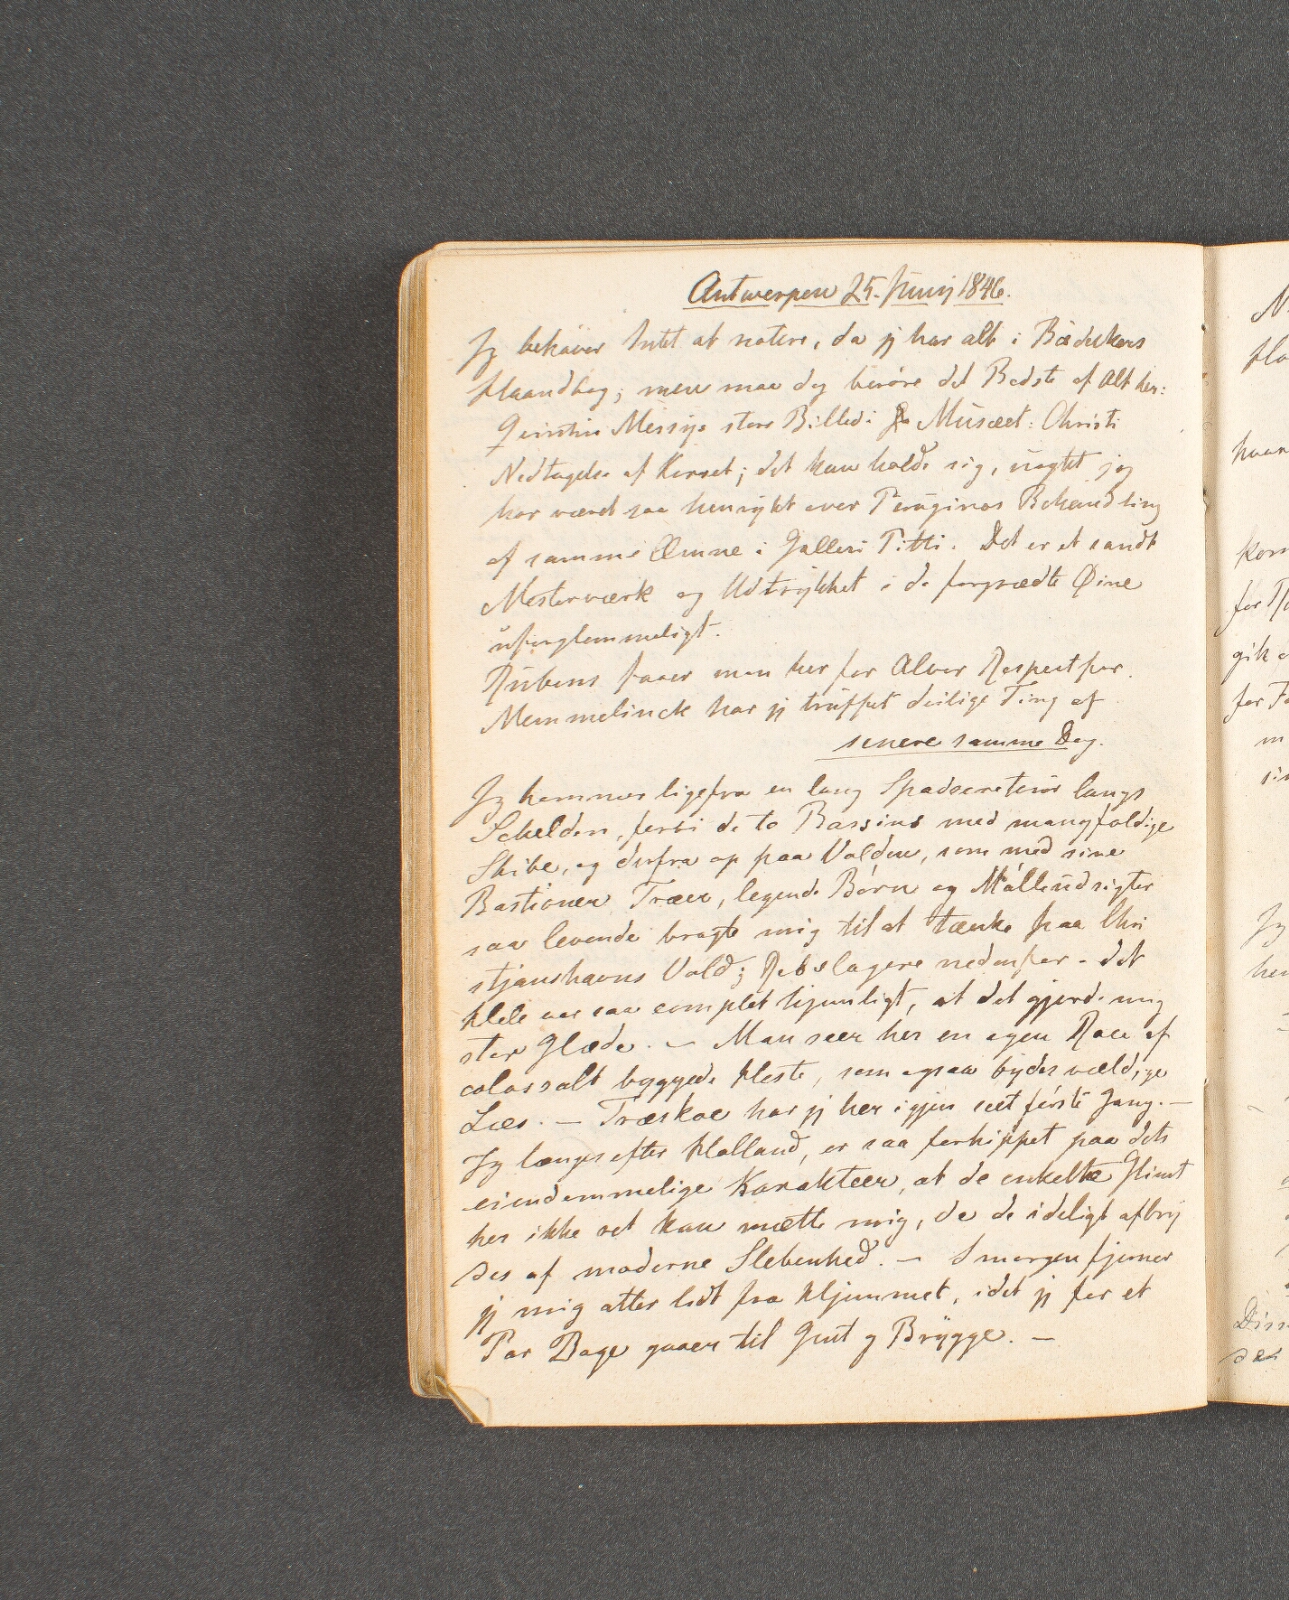 Antwerpen 25. Junij 1846.
Jg behöver Intet at notere, da jg har alt i Bædekers
Haandbog; men maa dog berøre det Bedste af Alt her:
Quintin Messys store Billed i Musæet: Christi
Nedtagelse af Korset; det kan holde sig, uagtet jeg
har været saa henrykt over Peruginos Behandling
af samme Emne i Galleri Pitti. Det er et sandt
Mesterværk og Udtrykket i de forgrædte Øine
uforglemmeligt.
Rubens faaer man her for Alvor Respect for.
Memmelinck har jg truffet deilige Ting af
senere samme Dag.
Jg kommer ligefra en lang Spadseretour langs
Schelden, forbi de to Bassins med mangfoldige
Skibe, og derfra op paa Volden, som med sine
Bastioner Træer, legende Börn og Mölleudsigter
saa levende bragte mig til at tænke paa Chri
stjanshavns Vold; Rebslagere nedenfor - det
Hele var saa complet hjemligt, at det gjorde mig
stor Glæde. — Man seer her en egen Race af
colossalt byggede Heste, som ogsaa byder vældige
Læs. — Træskoe har jg her igjen seet förste Gang. —
Jg længes efter Holland, er saa forhippet paa dets
eiendommelige Karakteer, at de enkelte Glimt
her ikke ret kan mætte mig, da de ideligt afbry
des af moderne Slebenhed. — I morgen fjerner
jg mig atter lidt fra Hjemmet, idet jg for et
Par Dage gaaer til Gent og Brygge. —